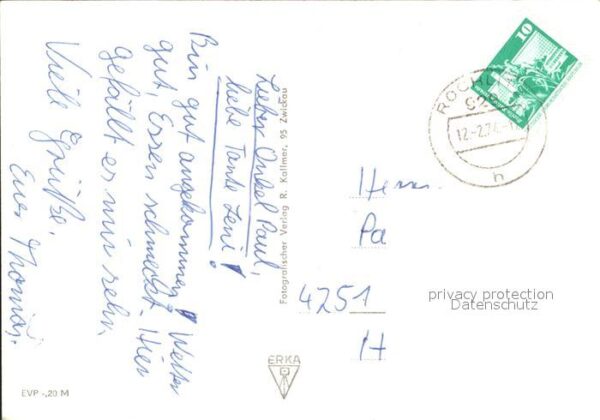 Lieber Onkel Paul,
liebe Tante Leni!
Bin gut angekommen! Wetter
gut, Essen schmeckt. Hier
gefällt es mir sehr.
Viele Grüße.
Euer Thomas.
Fotografischer Verlag R. Kallmer, 95 Zwickau
10
ROCHL
925
12.-2.74.-1
h
Herrn
Pa
4251
H
privacy protection
Datenschutz
ERKA
EVP -,20 M